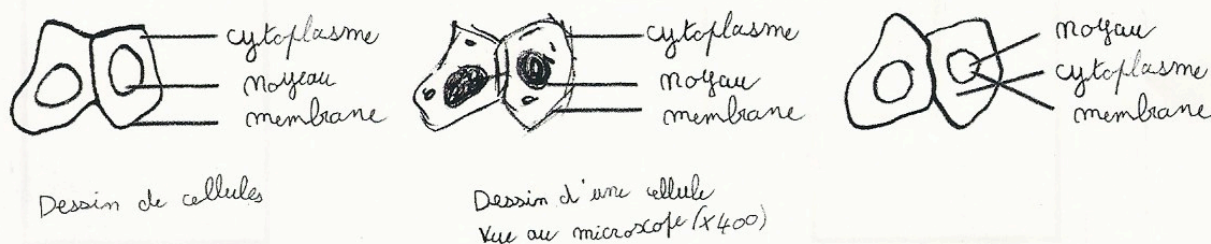 cytoplasme
noyeau
membrane
Dessin de cellules
cytoplasme
noyau
membrane
Dessin d'une cellule
Vue au microscope (x400)
noyau
cytoplasme
membrane